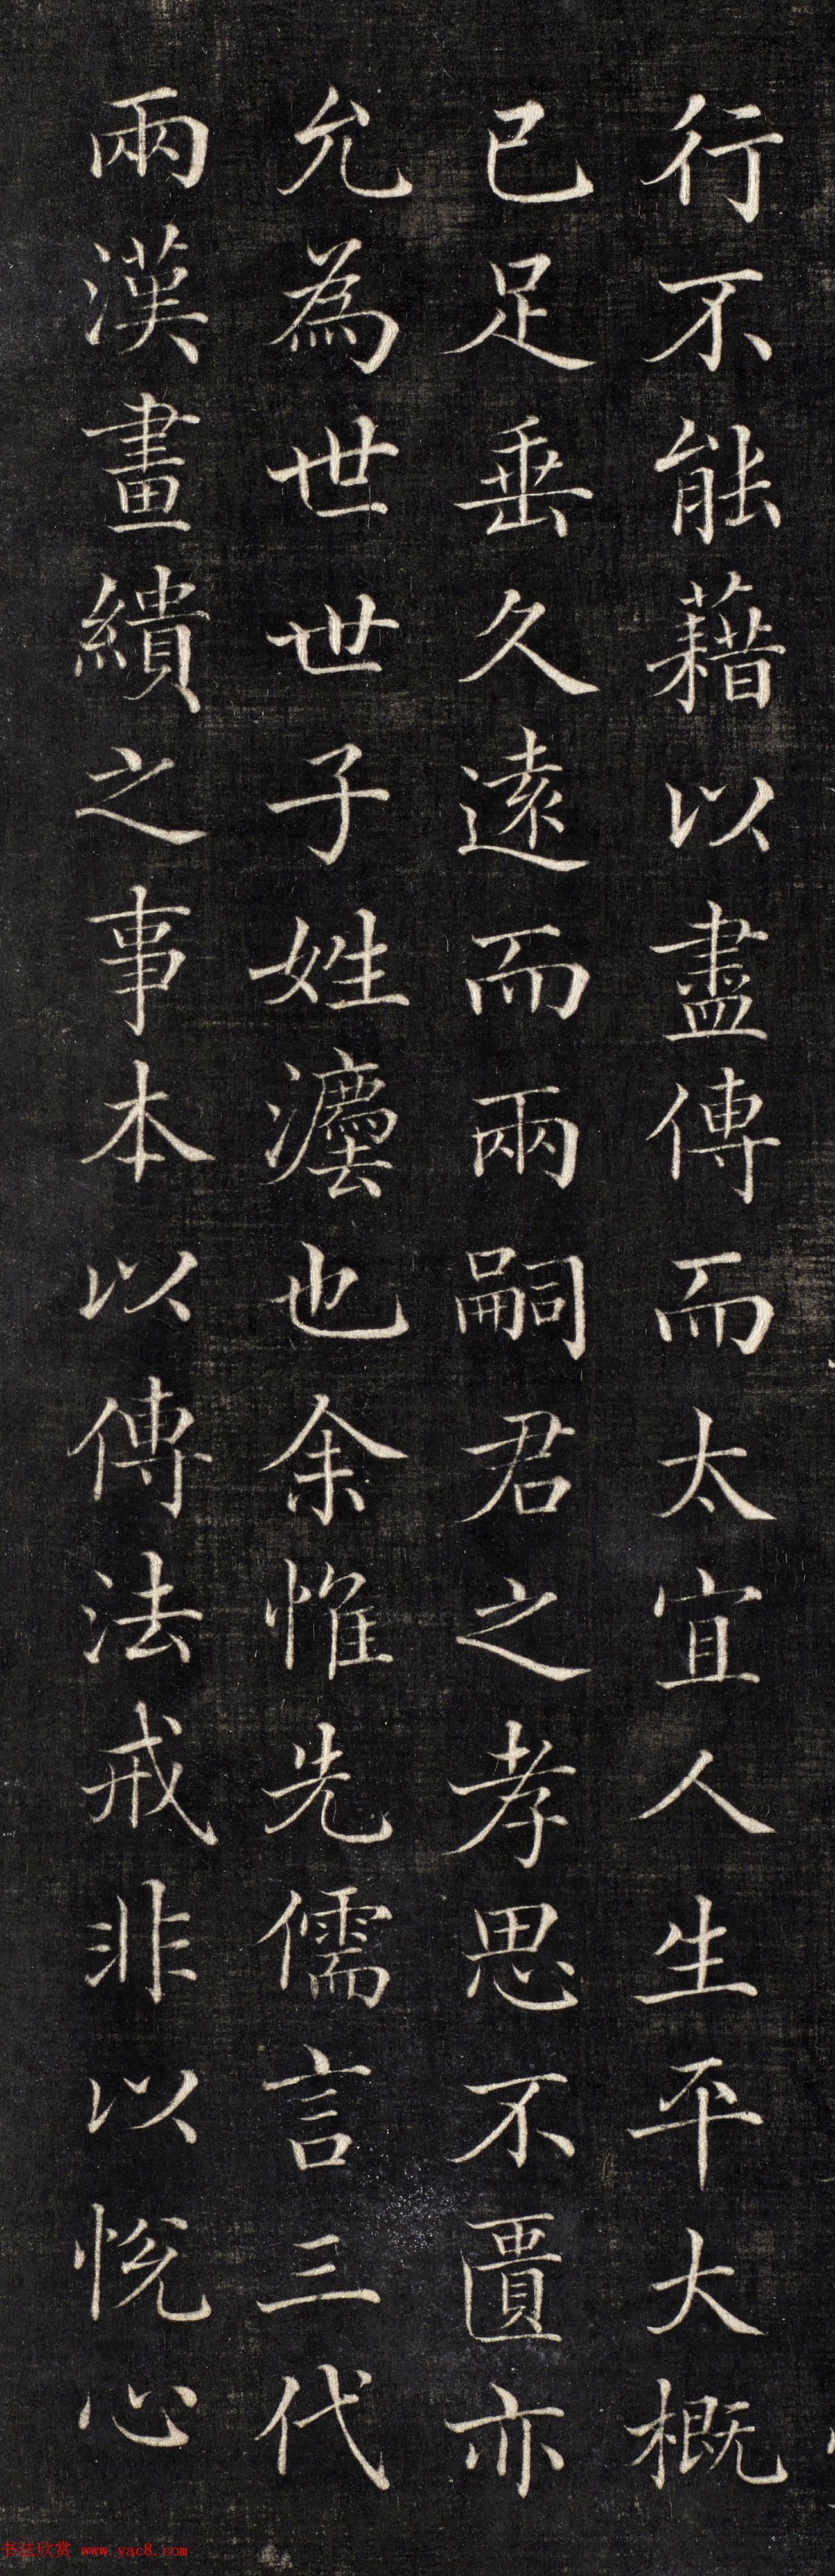 行不能藉以盡傳而太宜人生平大概
已足垂久遠而兩嗣君之孝思不匱亦
允為世世子姓灋也余惟先儒言三代
兩漢畫繢之事本以傳法戒非以悅心
书法欣赏 www.yac8.com